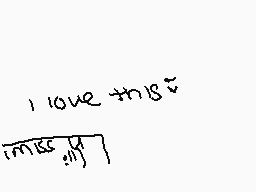 i love this
imiss